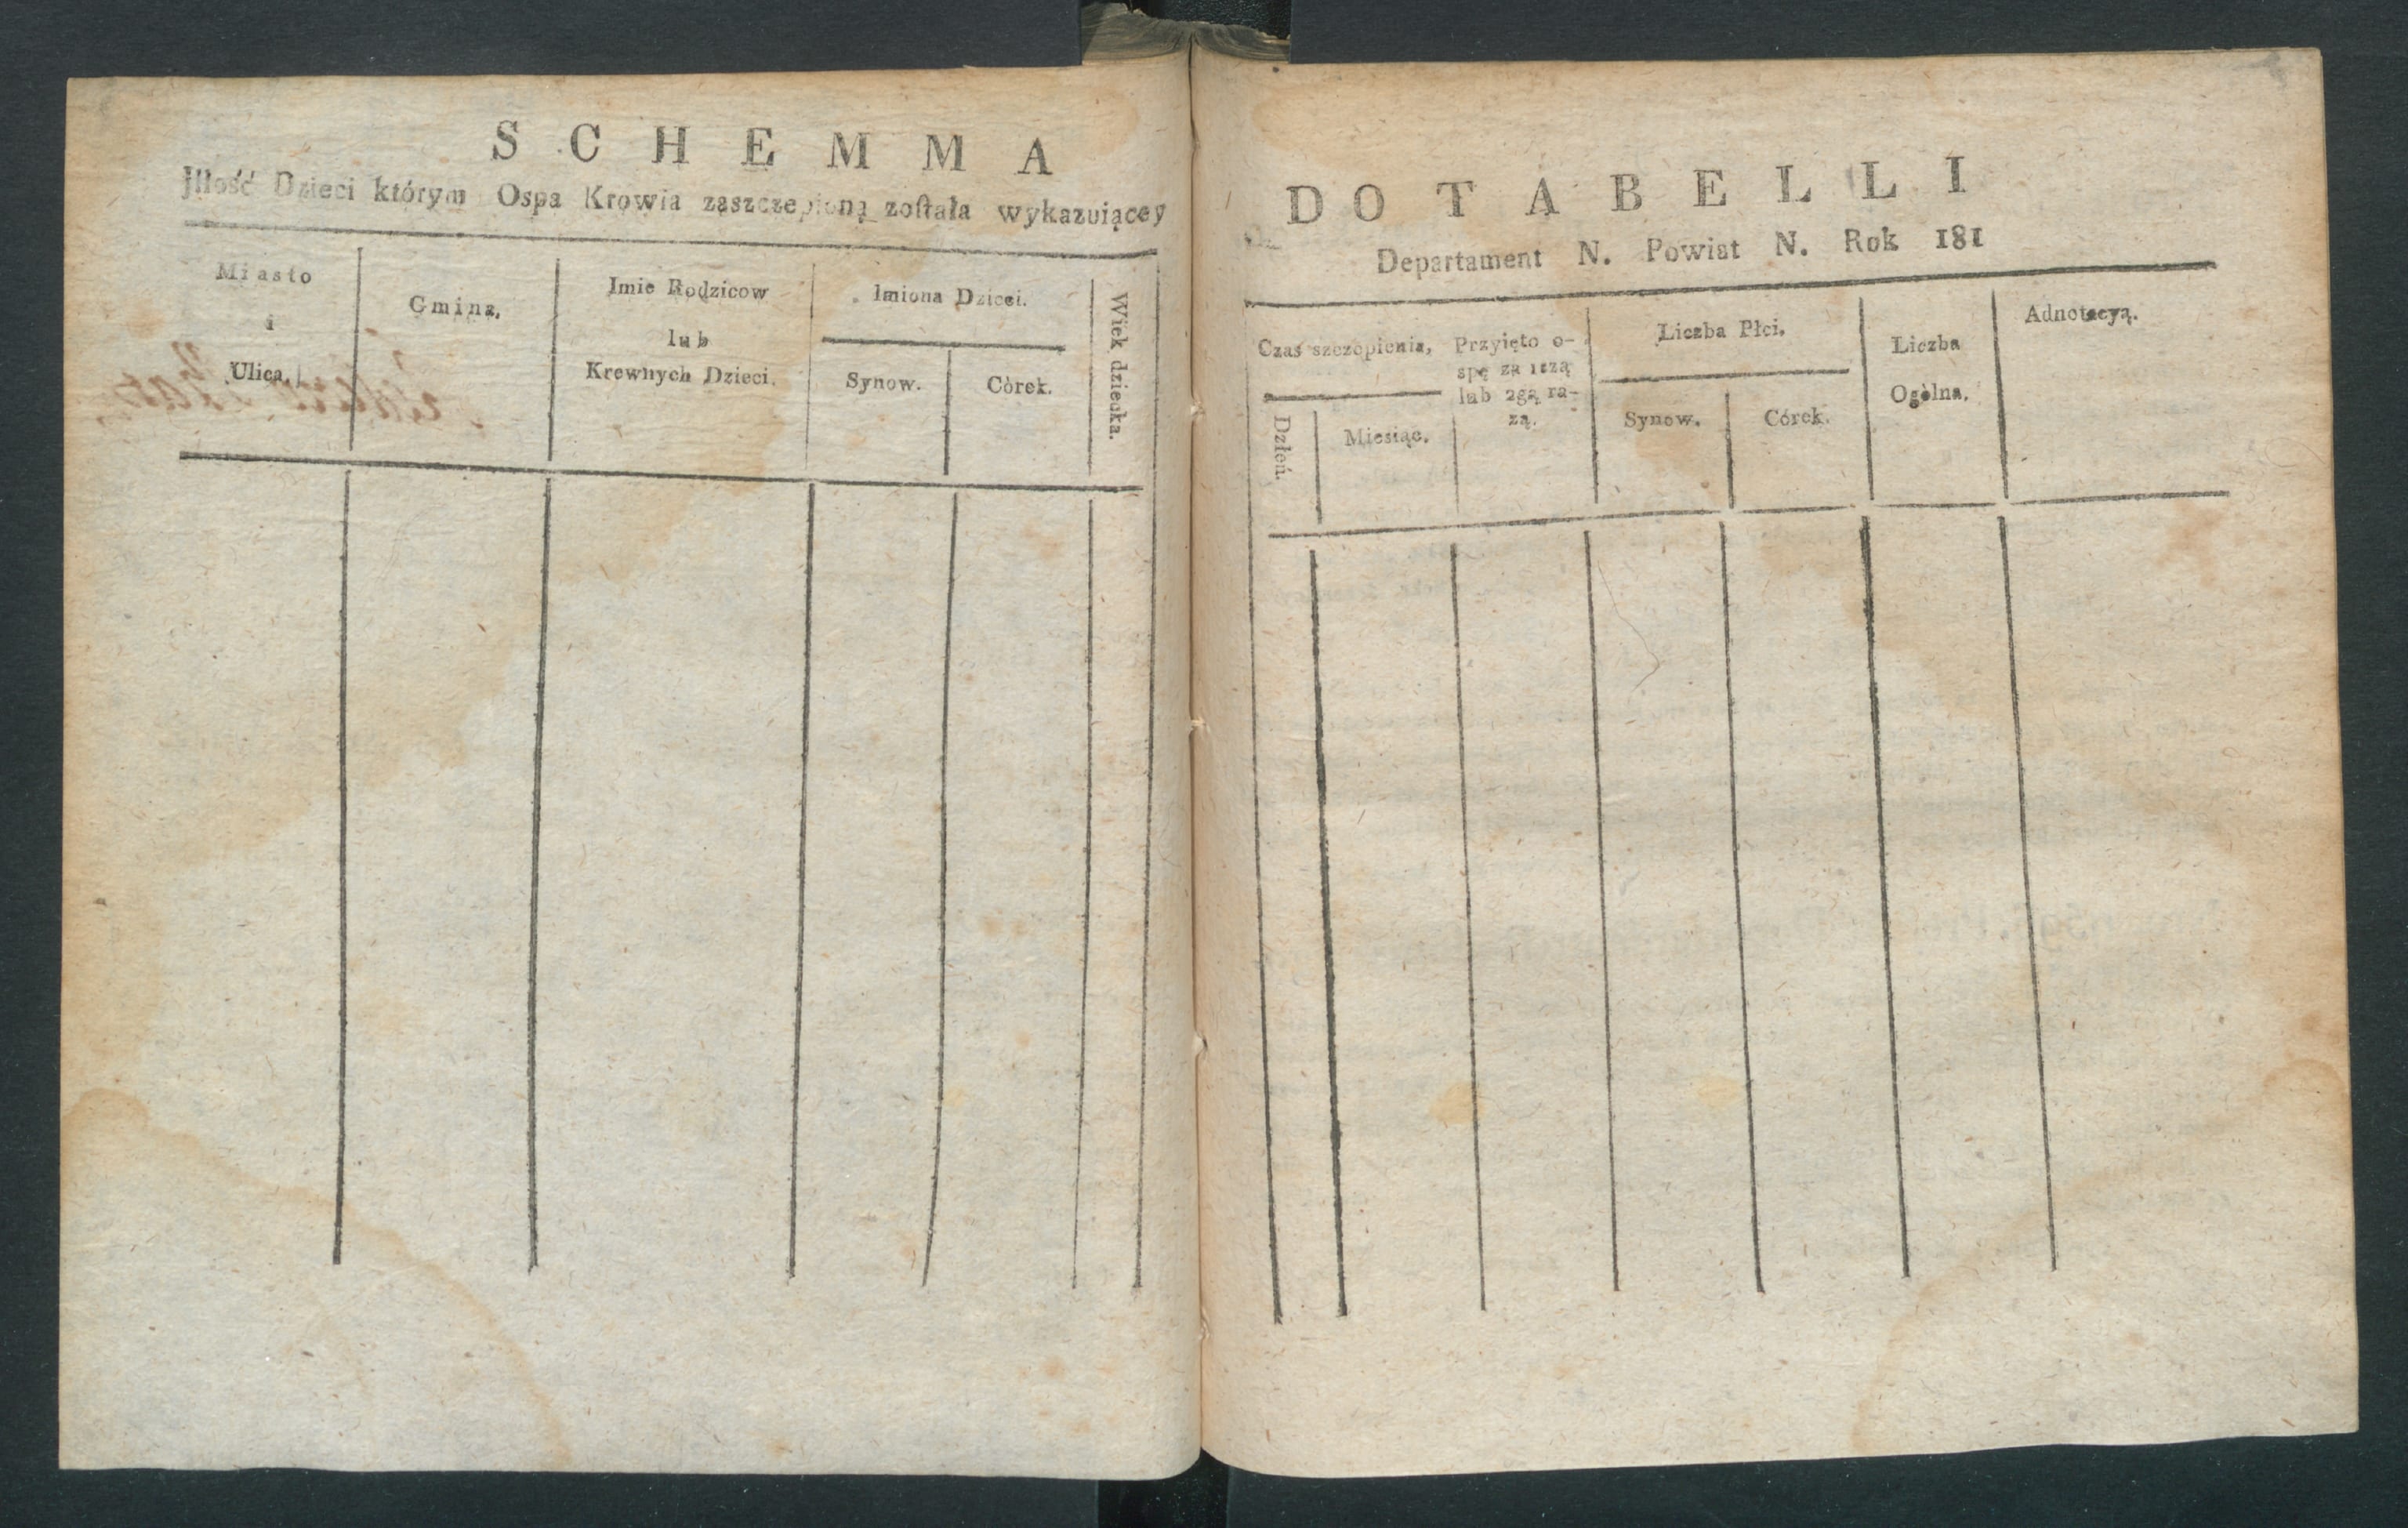 SCHEMMA
Jllość Dzieci którym Ospa Krowia zaszczepioną została wykazuiącey
Miasto
i
Ulica.
Gmina.
Imie Rodzicow
lub
Krewnych Dzieci.
Imiona Dzieci.
Synow.
Córek.
Wiek dziecka.
DO TABELLI
Departament N. Powiat N. Rok 181
Czas szczepienia,
Dzień.
Miesiąc.
Przyięto o-
spę za 1szą
lub 2gą ra-
zą.
Liczba Płci.
Synow.
Córek.
Liczba
Ogòlna.
Adnotacyą.